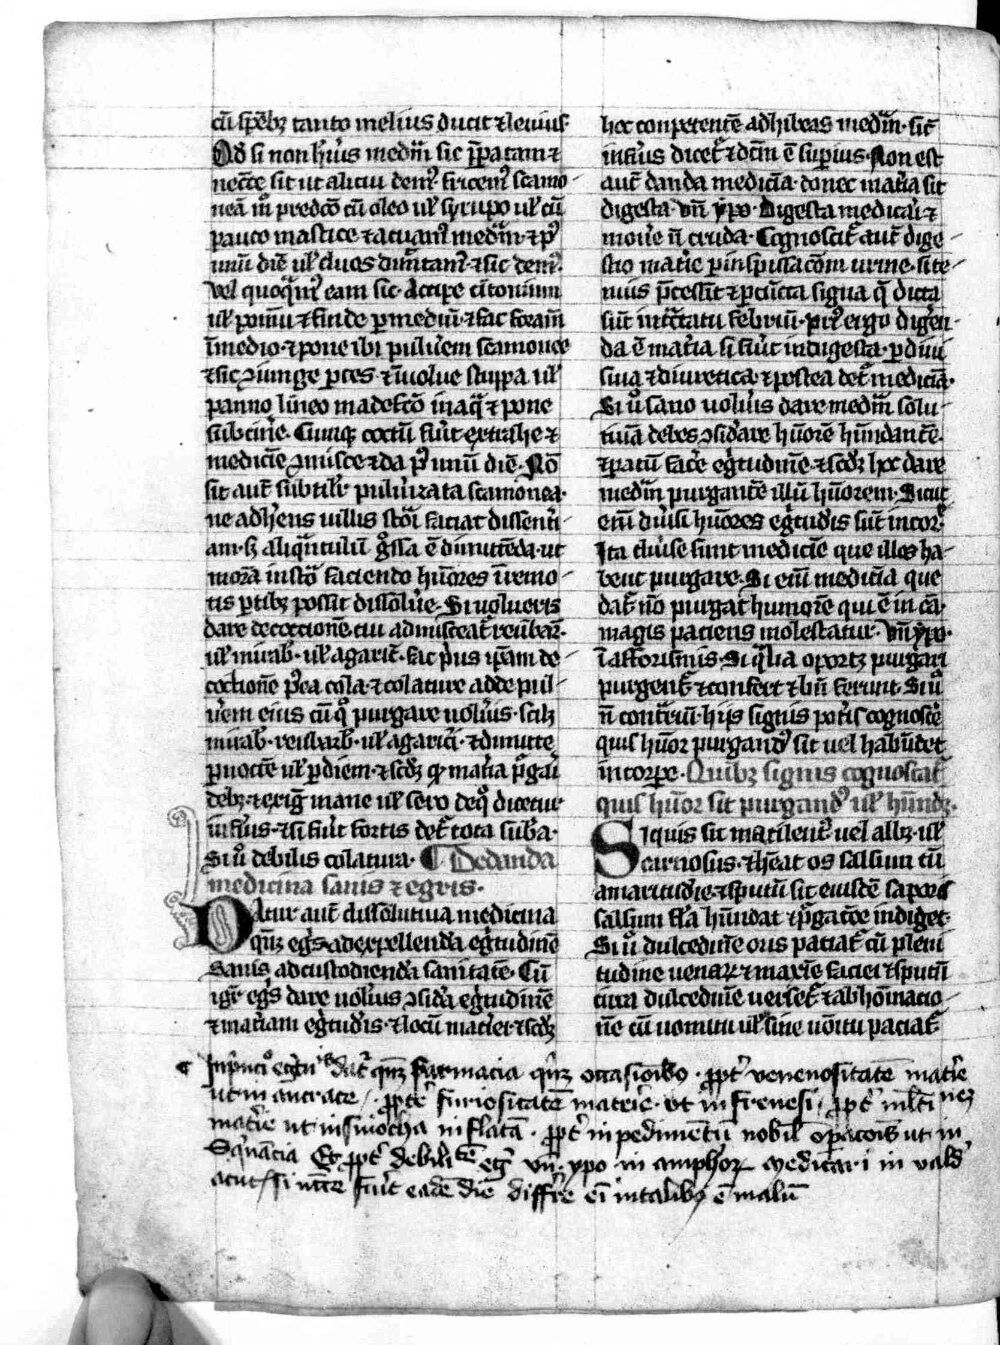 cū spēbȝ tanto melius ducit ⁊ leuius·
Qd̄ si non hīus medīn̄ sic p̄patam ⁊
necc̄e sit ut alicui demꝰ fricemꝰ scamo-
neā mō predc̄o cū oleo ul̄ syrupo ul̄ cū
pauco mastice ⁊ acuamꝰ medīn̄ ⁊ pꝰ
unū diē ul̄ duos dimittamꝰ ⁊ sic demꝰ·
Vel quoqͣmꝰ eam sic· Accipe citonium
ul̄ pomū ⁊ finde per mediū· ⁊ fac foram̄
ī medio· ⁊ pone ibi puluerem scamonee
⁊ sic ꝯiunge ꝑtes· ⁊ inuolue stuppa ul̄
panno lineo madefc̄o in aqͣ ⁊ pone
sub cinere. Cumqꝫ coctū fuīt extrahe ⁊
medicīe ꝯmisce ⁊ da pꝰ unū diē. Nō
sit aut̄ subtilīt puluīzata scamonea·
ne adhīens uillis stōi faciat dissenti-
am· sꝫ aliqͣntulū gͦssa ē dimittēda· ut
morā in stōͦ faciendo hūores ī remo-
tis ꝑtibȝ possit dissoluīe. Si uolueris
dare decoctionē cui admisceat̄ reubar̄·
ul̄ mirab̄· ul̄ agaric̄· fac pͥus ip̄am de-
coctionē pͥea cola· ⁊ colature adde pul-
uīem eius cū qͦ purgare uoluīis· scilꝫ
mirab̄· reubarb̄· ul̄ agarici· ⁊ dimitte
ꝑ noctē ul̄ ꝑ diem· ⁊ scd̄ꝫ qͦ mat̄ia pͥgai
debȝ· ⁊ exiḡ mane ul̄ sero de qͦ dicetur
inferius· ⁊ si fuīt fortis det̄ tota sub̄a·
Si u̇ debilis colatura· ¶ De danda
medicina sanis ⁊ egris·
Datur aut̄ dissolutiua medicina
qn̄ꝫ egrīs ad expellendā egͥtudinē
Sanis ad custodiendā sanitatē. Cū
igīt egrīs dare uoluīis ꝯsidīa egͥtudinē
⁊ mat̄iam egͥtudīs· ⁊ locū mat̄iei· ⁊ scd̄ꝫ
hoc conpetentē adhibeas medīn̄· sic̄
inferius dicet̄ ⁊ dc̄m ē superius. Non est
aut̄ danda medicīa· donec mat̄ia sit
digesta· vn̄ ypo· Digesta medicari ⁊
mouīe n̄ cruda. Cognoscit̄ aut̄ dige-
stio mat̄ie ꝑ inspissac̄oem urine· si te-
nuis p̄cessit ⁊ ꝑ cūcta signa q̄ dicta
sūt in tͣctatu febriū· pͥꝰ ergo digēn-
da ē mat̄ia si fuīt indigesta· ꝑ digi-
siua ⁊ diuretica· ⁊ postea det̄ᷣ medicīa·
Si u̇ sano uoluīis dare medīn̄ solu-
tiuā debes ꝯsidīare hūorē hundantē·
⁊ patū facīe egͥtudinē ⁊ scd̄ꝫ hoc dare
medīn̄ purgantē illū hūorem· Sicut
enī diuīsi hūores egͥtudīs sūt in cor̄
Ita diuīse sunt medicīe que illos ha-
bent purgare. Si enī medicīa que
dat̄ nō purgat humorē qui ē in cā
magis patiens molestatur· vn̄ ypo·
ī afforismis. Si qͣlia oportꝫ purgari
purgent̄ ⁊ confert ⁊ bn̄ ferunt. Si u̇
n̄ contͣriū· hijs signis potīs cognoscīe
quis hūor purgandꝰ sit uel habūdet
in corpore· Quibꝫ signis cognoscat̄
quis hūor sit purgandꝰ ul̄ hūndꝫ·
Siquis sit macilentꝰ uel albꝰ· ul̄
carnosus· ⁊ heat os salsum cū
amaritudīe· ⁊ sputū sit eiusdē saporis
salsum fl̄a hūndat ⁊ pͥgac̄oe indiget·
Si u̇ dulcedinē oris paciat̄ cū pleni
tudine uenaꝝ ⁊ maxīe faciei ⁊ sputū
circa dulcedinē uerset̄ ⁊ abhoīnacio-
nē cū uomitu ul̄ sine uomitu paciat̄
¶ In pͥncͦ egͥtu dat̄ qn̄ꝫ farmacia· qͥnꝫ occasionibꝰ· ꝓpt̄ venenositatē mat̄ie
ut in antrace /· ꝓpt̄ furiositatē materie· ut in frenesi /· ꝓpt̄ ml̄ti nez
mat̄ie ut in sinocha inflata· ꝓpt̄ inpedimentū nobil̄ opac̄ois ut in
Sqͥnācia Et ꝓpt̄ debilitē egͥ· vn̄ ypo in amphor· medicari in vald
acut / si mat̄e fuīt eadē die differre eī in talibꝰ ē malū